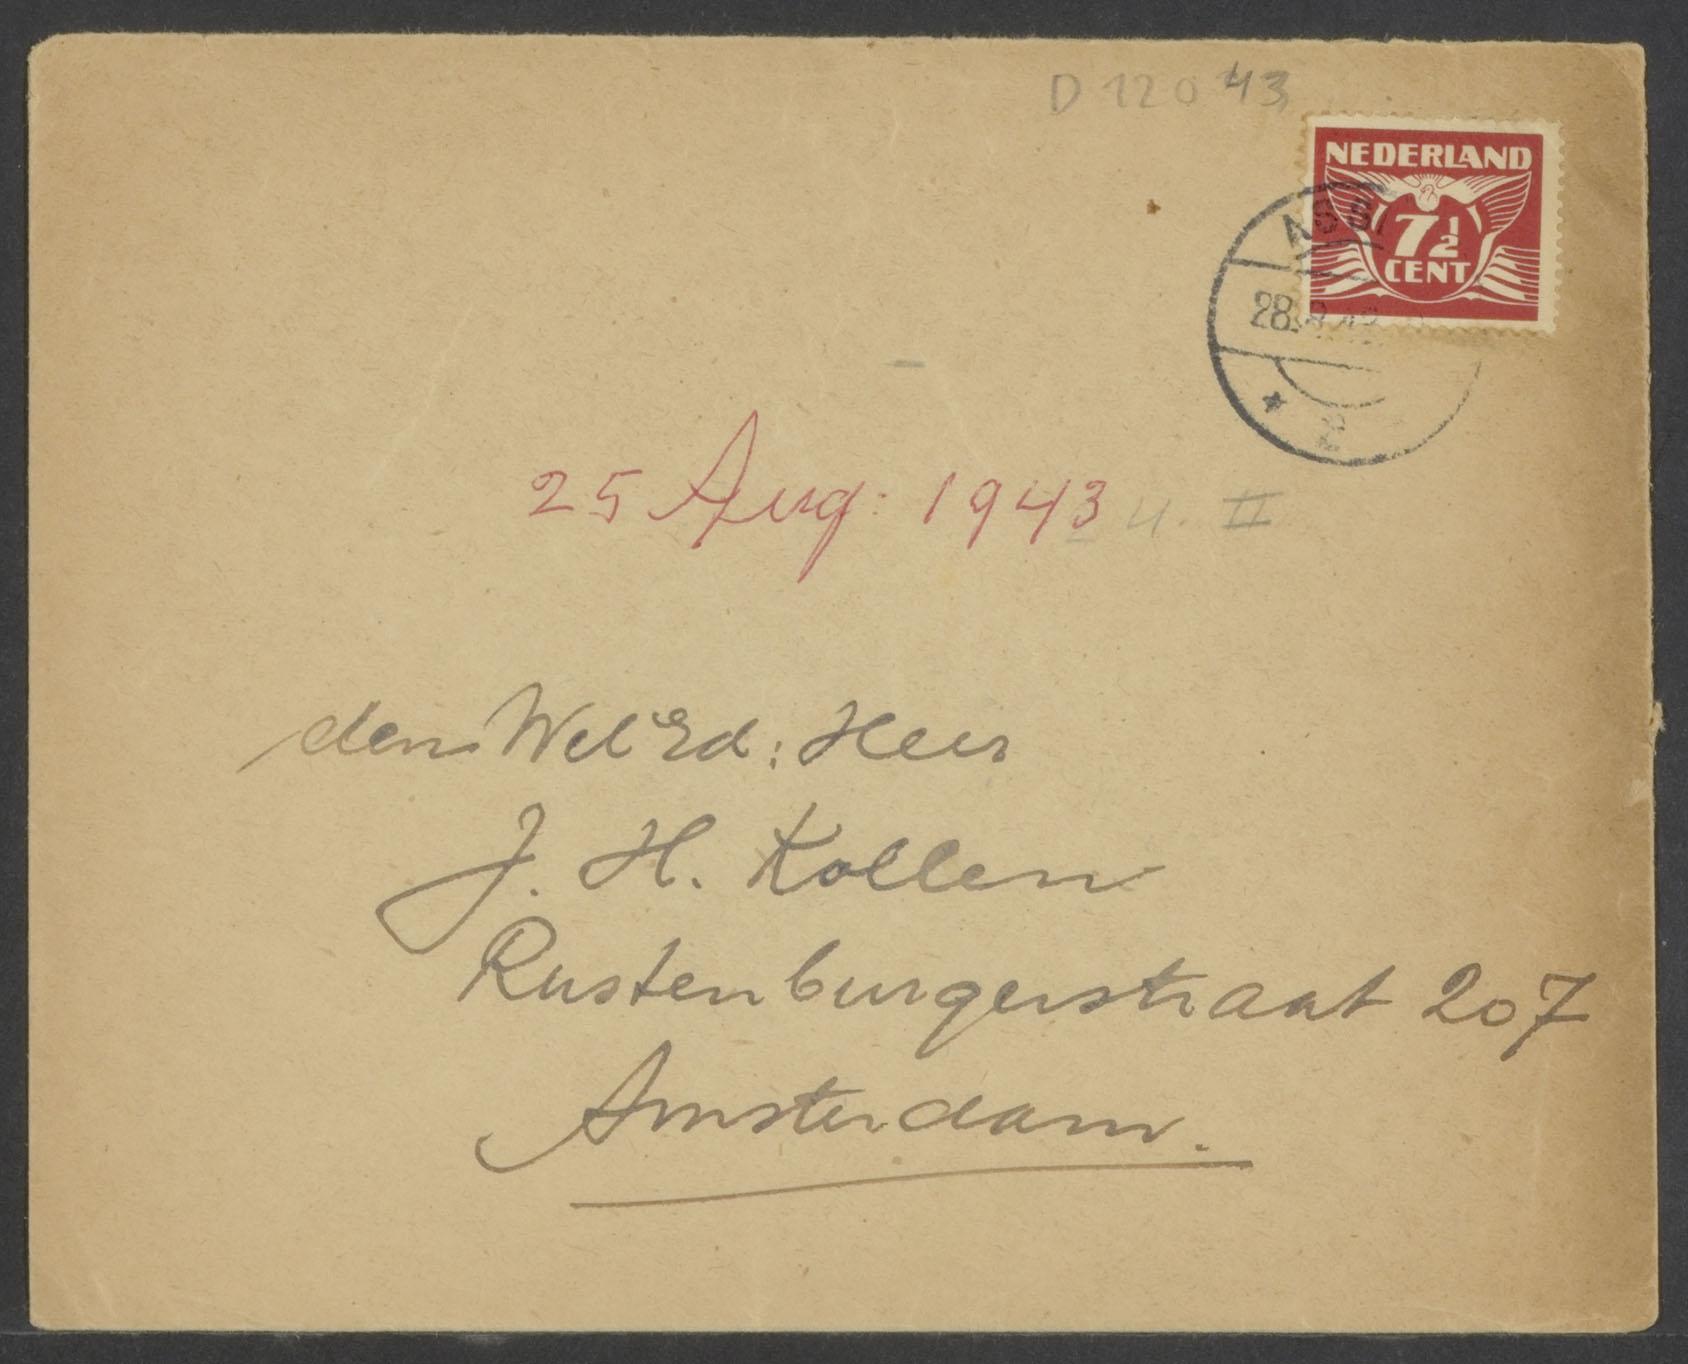 D 12043
NEDERLAND
7½
CENT
28.
2
25 Aug: 1943 II
den WelEd: Heer
J. H. Kollen
Rustenburgerstraat 207
Amsterdam.